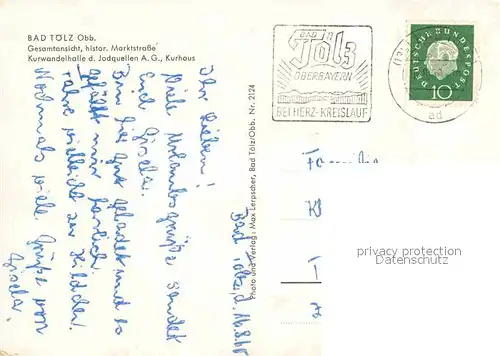 BAD TÖLZ Obb.
Gesamtansicht, histor. Marktstraße
Kurwandelhalle d. Jodquellen A.G., Kurhaus
BAD
Tölz
OBERBAYERN
BEI HERZ-KREISLAUF
DEUTSCHE BUNDESPOST
10
Photo und Verlag: Max Lerpscher, Bad Tölz/Obb. Nr. 2124
Bad Tölz, d. 16.8.60
Ihr Lieben!
Viele Urlaubsgrüße sendet
Euch Gisela.
Bin hier gut gelandet und es
gefällt mir herrlich.
fahre vielleicht zu
Nochmals viele Grüße von
Gisela
Familie
privacy protection
ansichtskarten-center.de